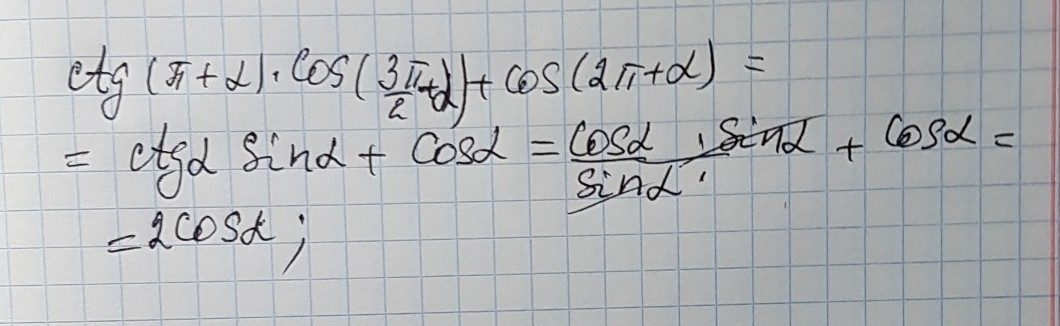 ctg (π + α) · cos (3π/2 + α) + cos (2π + α) =
= ctgα sinα + cosα = cosα/sinα · sinα + cosα =
= 2cosα;